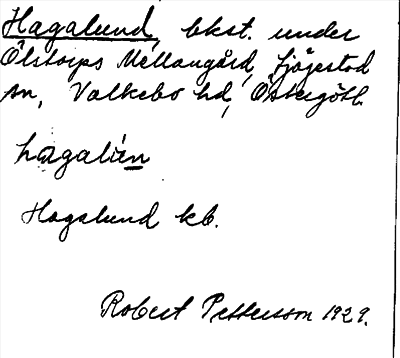 Hagalund, bkst. under
Ölstorps Mellangård, Sjögestad
sn, Valkebo hd, Östergötl.
hagalún
Hagalund kb.
Robert Pettersson 1929.